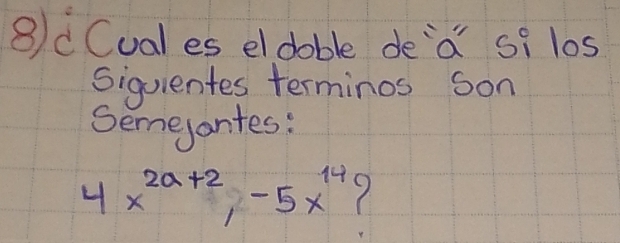 8) ¿Cual es el doble de "a" si los
Siguientes terminos Son
Semejantes:
4x^{2a+2}, -5x^{14}?